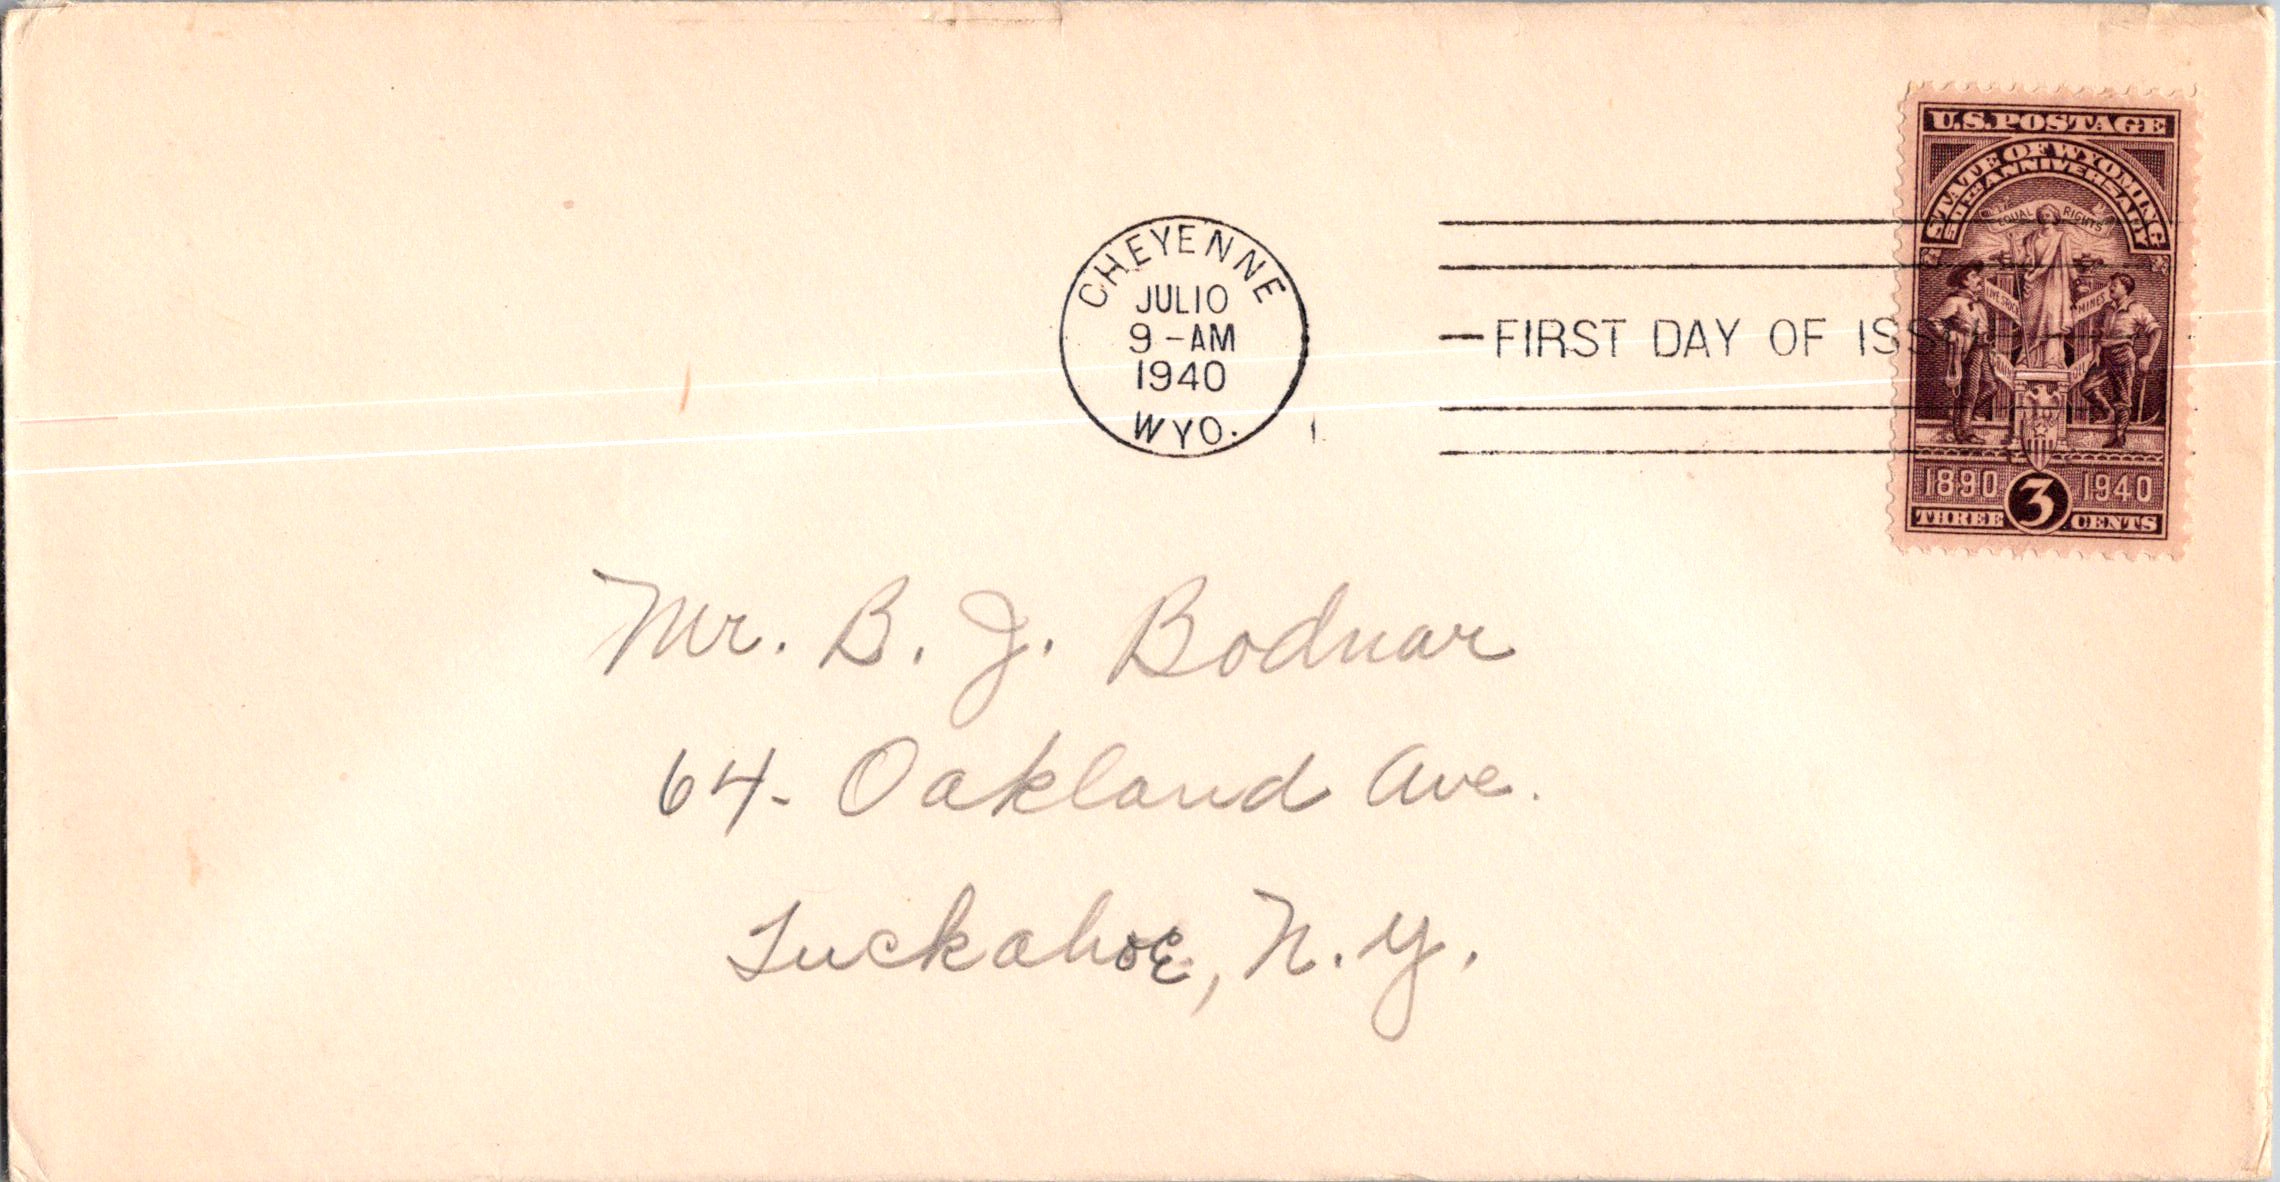 U.S. POSTAGE
STATE OF WYOMING
50TH ANNIVERSARY
EQUAL RIGHTS
LIVE STOCK
MINES
OIL
1890 3 1940
THREE CENTS
CHEYENNE
JUL 10
9-AM
1940
WYO.
FIRST DAY OF ISS
Mr. B. J. Bodnar
64- Oakland Ave.
Tuckahoe, N.Y.